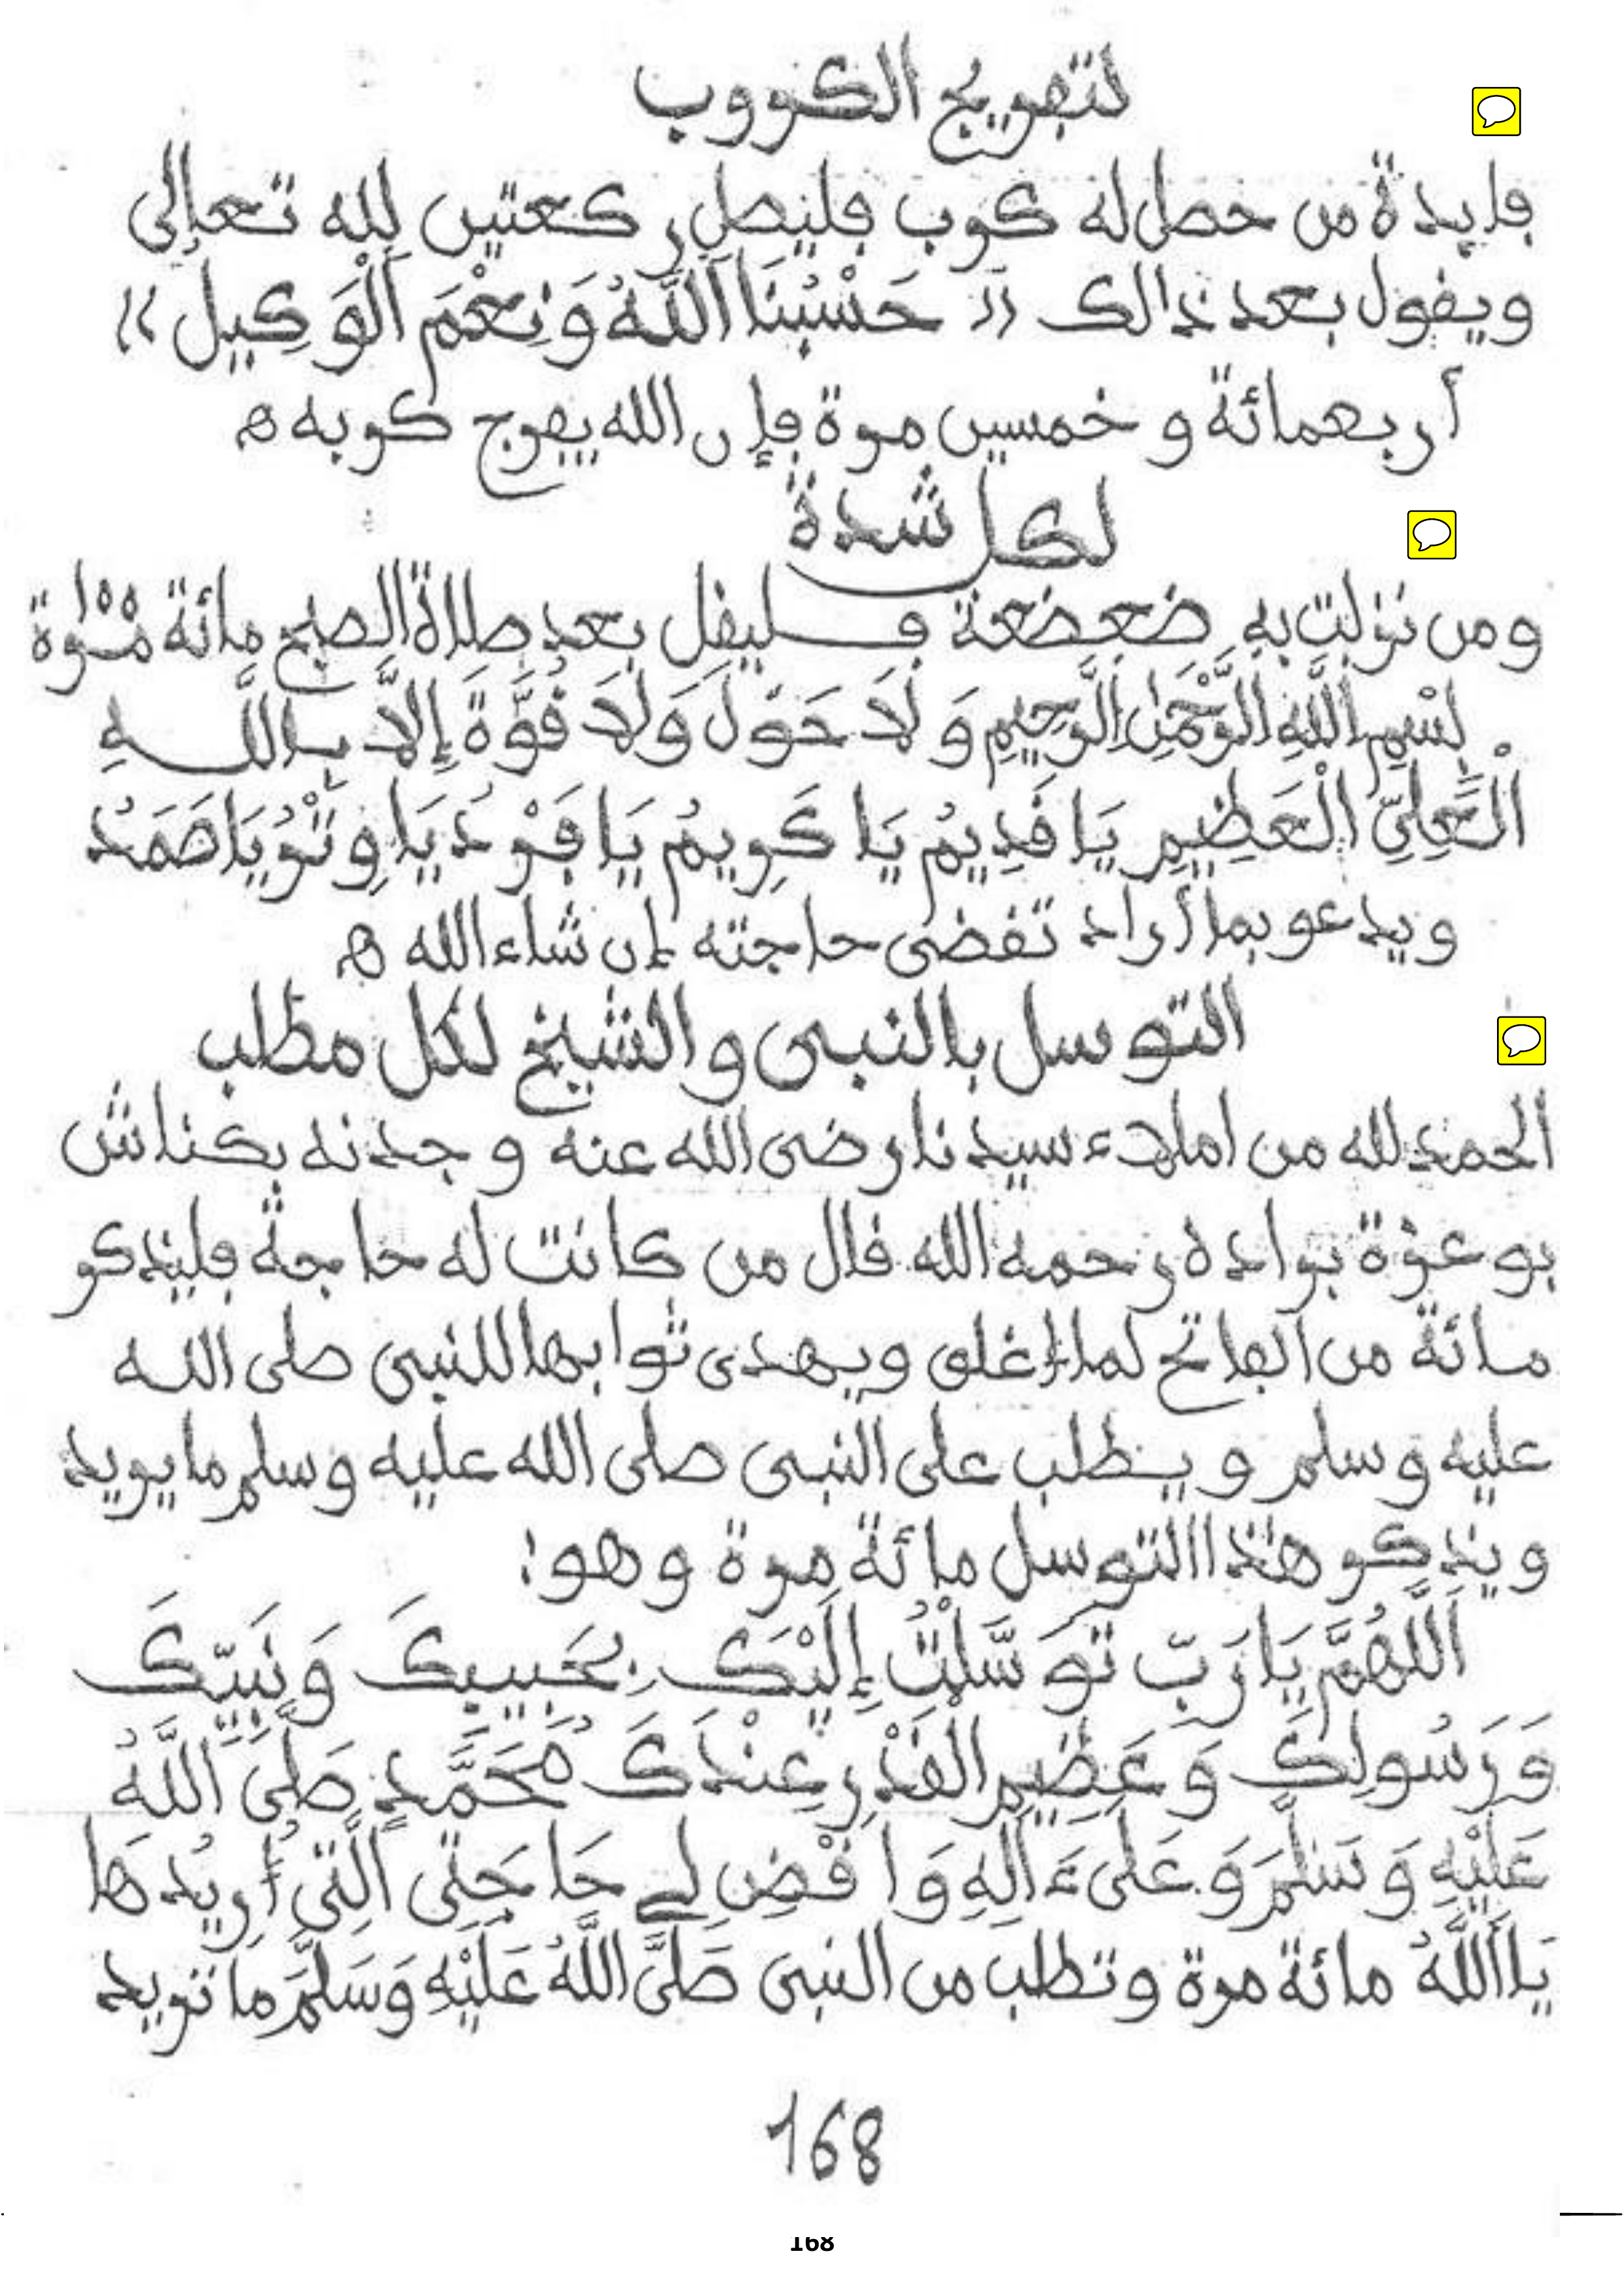 لتفريج الكروب
فايدة من حصل له كرب فليصل ركعتين لله تعالى
ويقول بعد ذالك (( حَسْبُنَا اَللَّهُ وَنِعْمَ اَلْوَكِيلُ ))
أربعمائة وخمسين مرة فإن الله يفرج كربه ه
لكل شدة
ومن نزلت به ضعضعة فليقل بعد صلاة الصبح مائة مرة
بِسْمِ اللَّهِ الرَّحْمَنِ الرَّحِيمِ وَلَا حَوْلَ وَلَا قُوَّةَ إِلَّا بِاللَّهِ
الْعَلِيِّ الْعَظِيمِ يَا قَدِيمُ يَا كَرِيمُ يَا فَرْدُ يَا وِتْرُ يَا صَمَدُ
ويدعو بما أراد تقضى حاجته إن شاء الله ه
التوسل بالنبي والشيخ لكل مطلب
الحمد لله من املاء سيدنا رضى الله عنه وجدته بكناش
بوعزة برادة رحمه الله قال من كانت له حاجة فليذكر
مائة من الفاتح لما اغلق ويهدى ثوابها للنبى صلى الله
عليه وسلم ويطلب على النبى صلى الله عليه وسلم ما يريد
ويذكر هذا التوسل مائة مرة وهو:
اَللَّهُمَّ يَا رَبِّ تَوَسَّلْتُ إِلَيْكَ بِحَبِيبِكَ وَنَبِيِّكَ
وَرَسُولِكَ وَعَظِيمِ الْقَدْرِ عِنْدَكَ مُحَمَّدٍ صَلَّى اَللَّهُ
عَلَيْهِ وَسَلَّمَ وَعَلَى ءَالِهِ وَاقْضِ لِى حَاجَتِى الَّتِى أُرِيدُهَا
يَا اَللَّهُ مائة مرة وتطلب من النبى صَلَّى اللَّهُ عَلَيْهِ وَسَلَّمَ ما تريد
168
168